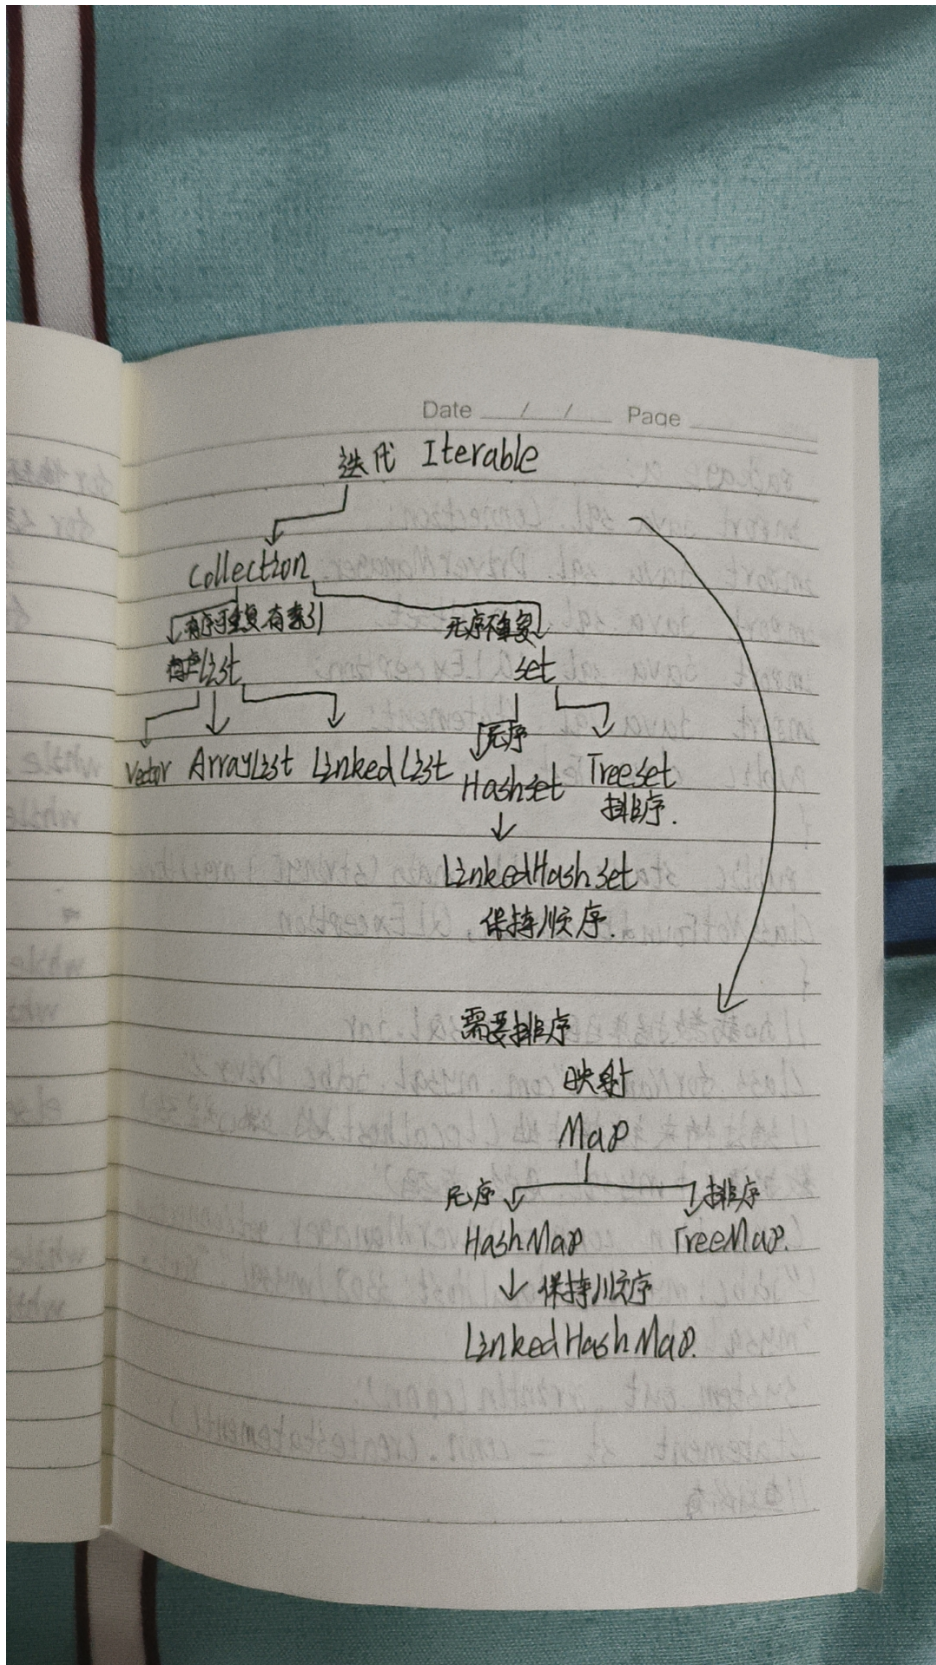 Date / / Page
迭代 Iterable
Collection
有序可重复有索引 无序不重复
List set
无序
Vector ArrayList LinkedList Hashset Treeset
排序.
LinkedHashset
保持顺序.
需要排序
映射
Map
无序 排序
HashMap TreeMap.
保持顺序
LinkedHashMap.